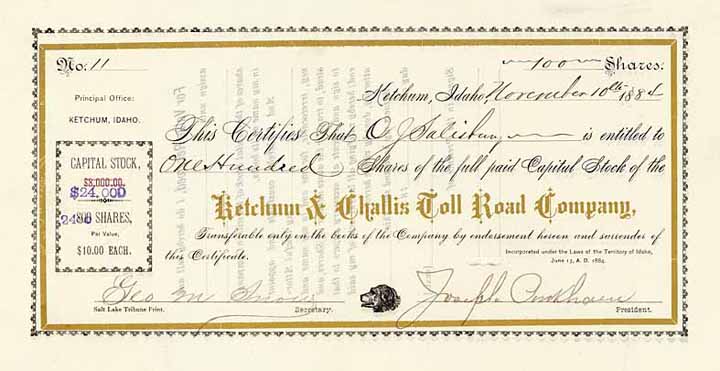 No. 11
100 Shares.
Principal Office:
KETCHUM, IDAHO.
Ketchum, Idaho, November 10th 1884
This Certifies That O J Salisbury is entitled to
One Hundred Shares of the full paid Capital Stock of the
CAPITAL STOCK,
$8,000.00.
$24,000
2400
800 SHARES,
Par Value,
$10.00 EACH.
Ketchum & Challis Toll Road Company,
Transferable only on the books of the Company by endorsement hereon and surrender of
this Certificate.
Incorporated under the Laws of the Territory of Idaho,
June 13, A. D. 1884.
Geo M
Joseph Pinkham
Salt Lake Tribune Print.
Secretary.
President.